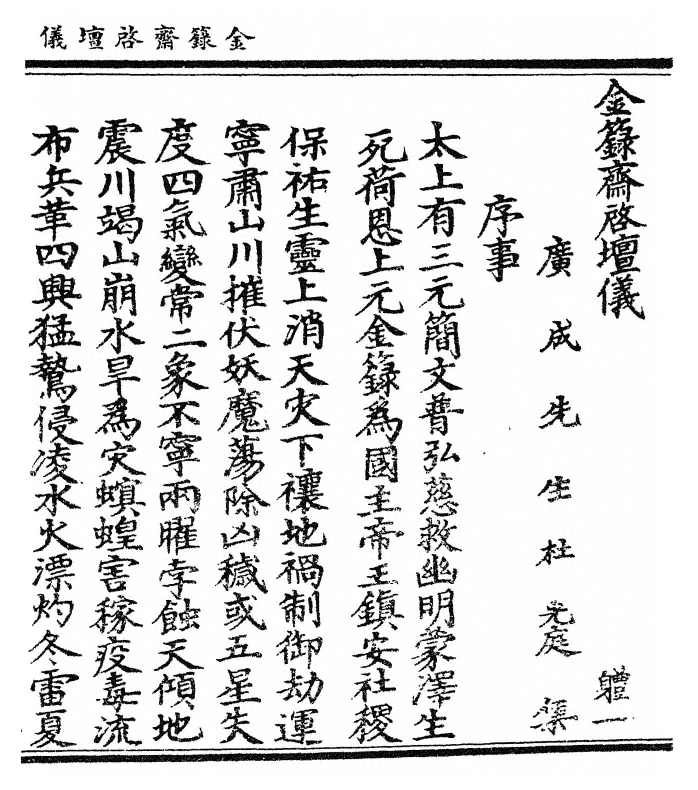 金籙齋啓壇儀
金籙齋啓壇儀　軆一
廣成先生杜光庭集
序事
太上有三元簡文普弘慈救幽明蒙澤生
死荷恩上元金籙爲國主帝王鎮安社稷
保祐生靈上消天灾下禳地禍制御劫運
寧肅山川摧伏妖魔蕩除凶穢或五星失
度四氣變常二象不寧兩曜孛蝕天傾地
震川竭山崩水旱爲灾螟蝗害稼疫毒流
布兵革四興猛鷙侵凌水火漂灼冬雷夏